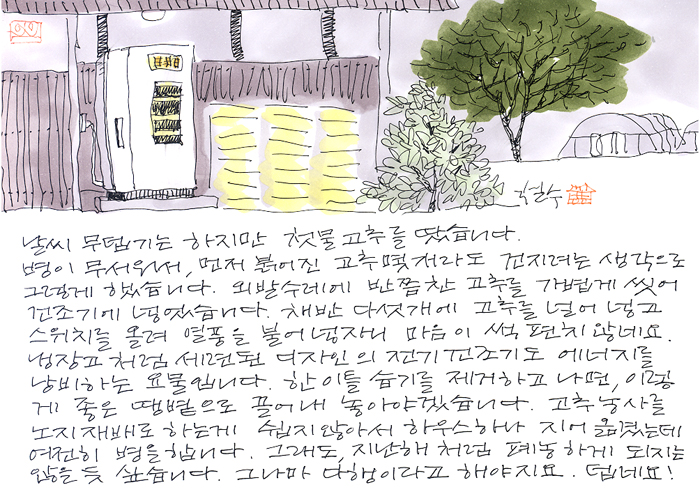 철수
날씨 무덥기는 하지만 첫물고추를 땄습니다.
병이 무서워서, 먼저 붉어진 고추몇저라도 건지려는 생각으로
그렇게 했습니다. 외발수레에 반쯤찬 고추를 가볍게 씻어
건조기에 넣었습니다. 채반 다섯개에 고추를 널어 넣고
스위치를 올려 열풍을 불어넣자니 마음이 썩 편치 않네요.
냉장고처럼 세련된 디자인의 전기건조기도 에너지를
낭비하는 요물입니다. 한이틀 습기를 제거하고 나면, 이렇
게 좋은 땡볕으로 끌어내 놓아야겠습니다. 고추농사를
노지재배로 하는게 쉽지않아서 하우스하나 지어 옮겼는데
여전히 병을합니다. 그래도, 지난해 처럼 폐농하게 되지는
않을듯 싶습니다. 그나마 다행이라고 해야지요. 덥네요!